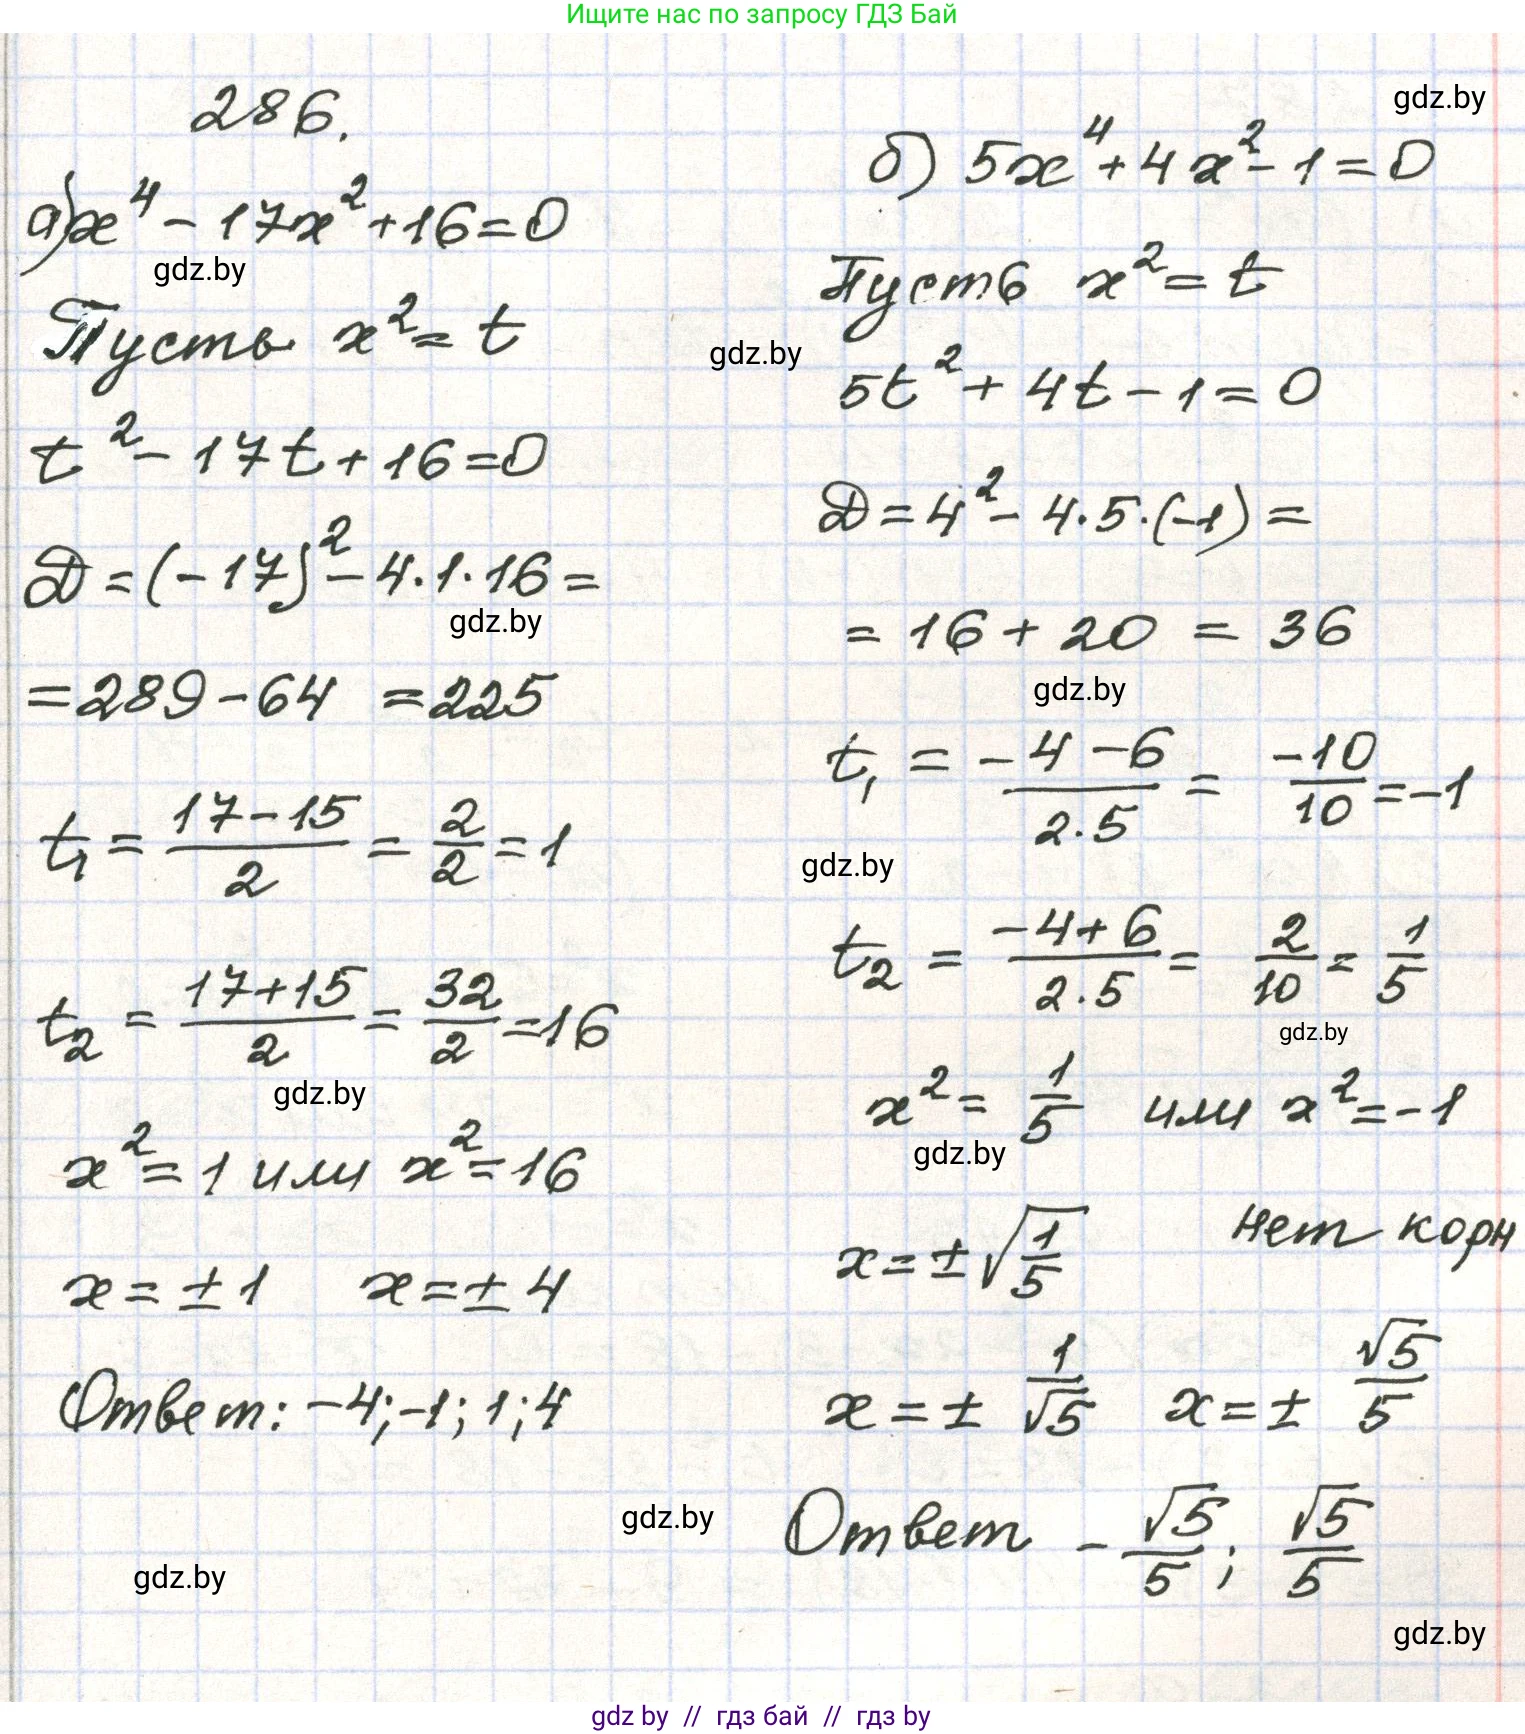 Ищите нас по запросу ГДЗ Бай
286.
gdz.by
а) x⁴ - 17x² + 16 = 0
gdz.by
Пусть x² = t
t² - 17t + 16 = 0
D = (-17)² - 4·1·16 =
gdz.by
= 289 - 64 = 225
t₁ = (17-15)/2 = 2/2 = 1
t₂ = (17+15)/2 = 32/2 = 16
gdz.by
x² = 1 или x² = 16
x = ±1 x = ±4
Ответ: -4; -1; 1; 4
gdz.by
б) 5x⁴ + 4x² - 1 = 0
Пусть x² = t
gdz.by
5t² + 4t - 1 = 0
D = 4² - 4·5·(-1) =
= 16 + 20 = 36
gdz.by
t₁ = (-4-6)/(2·5) = -10/10 = -1
gdz.by
t₂ = (-4+6)/(2·5) = 2/10 = 1/5
gdz.by
x² = 1/5 или x² = -1
gdz.by
нет корн
x = ±√(1/5)
x = ± 1/√5 x = ± √5/5
gdz.by
Ответ -√5/5; √5/5
gdz.by
gdz by // гдз бай // гдз by